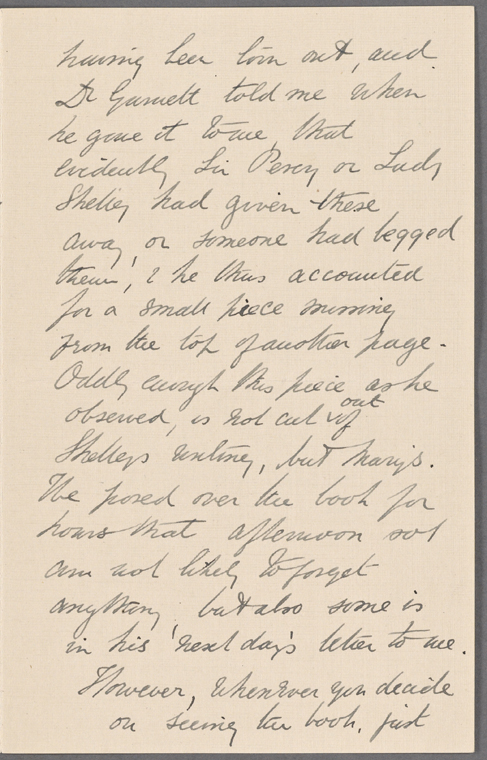 having been torn out, and
Dr Garnett told me when
he gave it to me, that
evidently Sir Percy or Lady
Shelley had given these
away, or someone had begged
them, & he thus accounted
for a small piece missing
from the top of another page.
Oddly enough this piece as he
observed, is not cut out of
Shelleys writing, but Mary's.
We pored over the book for
hours that afternoon so I
am not likely to forget
anything, but also some is
in his next day's letter to me.
However, whenever you decide
on seeing the book, just